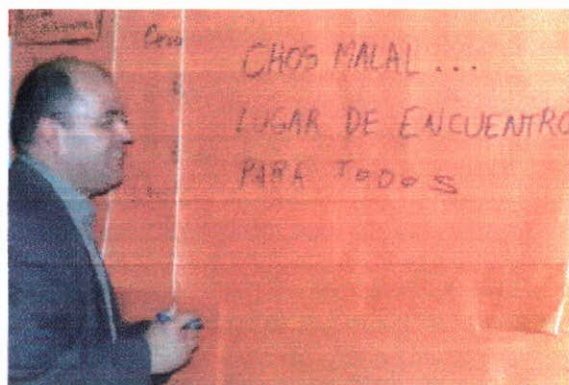 CHOS MALAL...
LUGAR DE ENCUENTRO
PARA TODOS